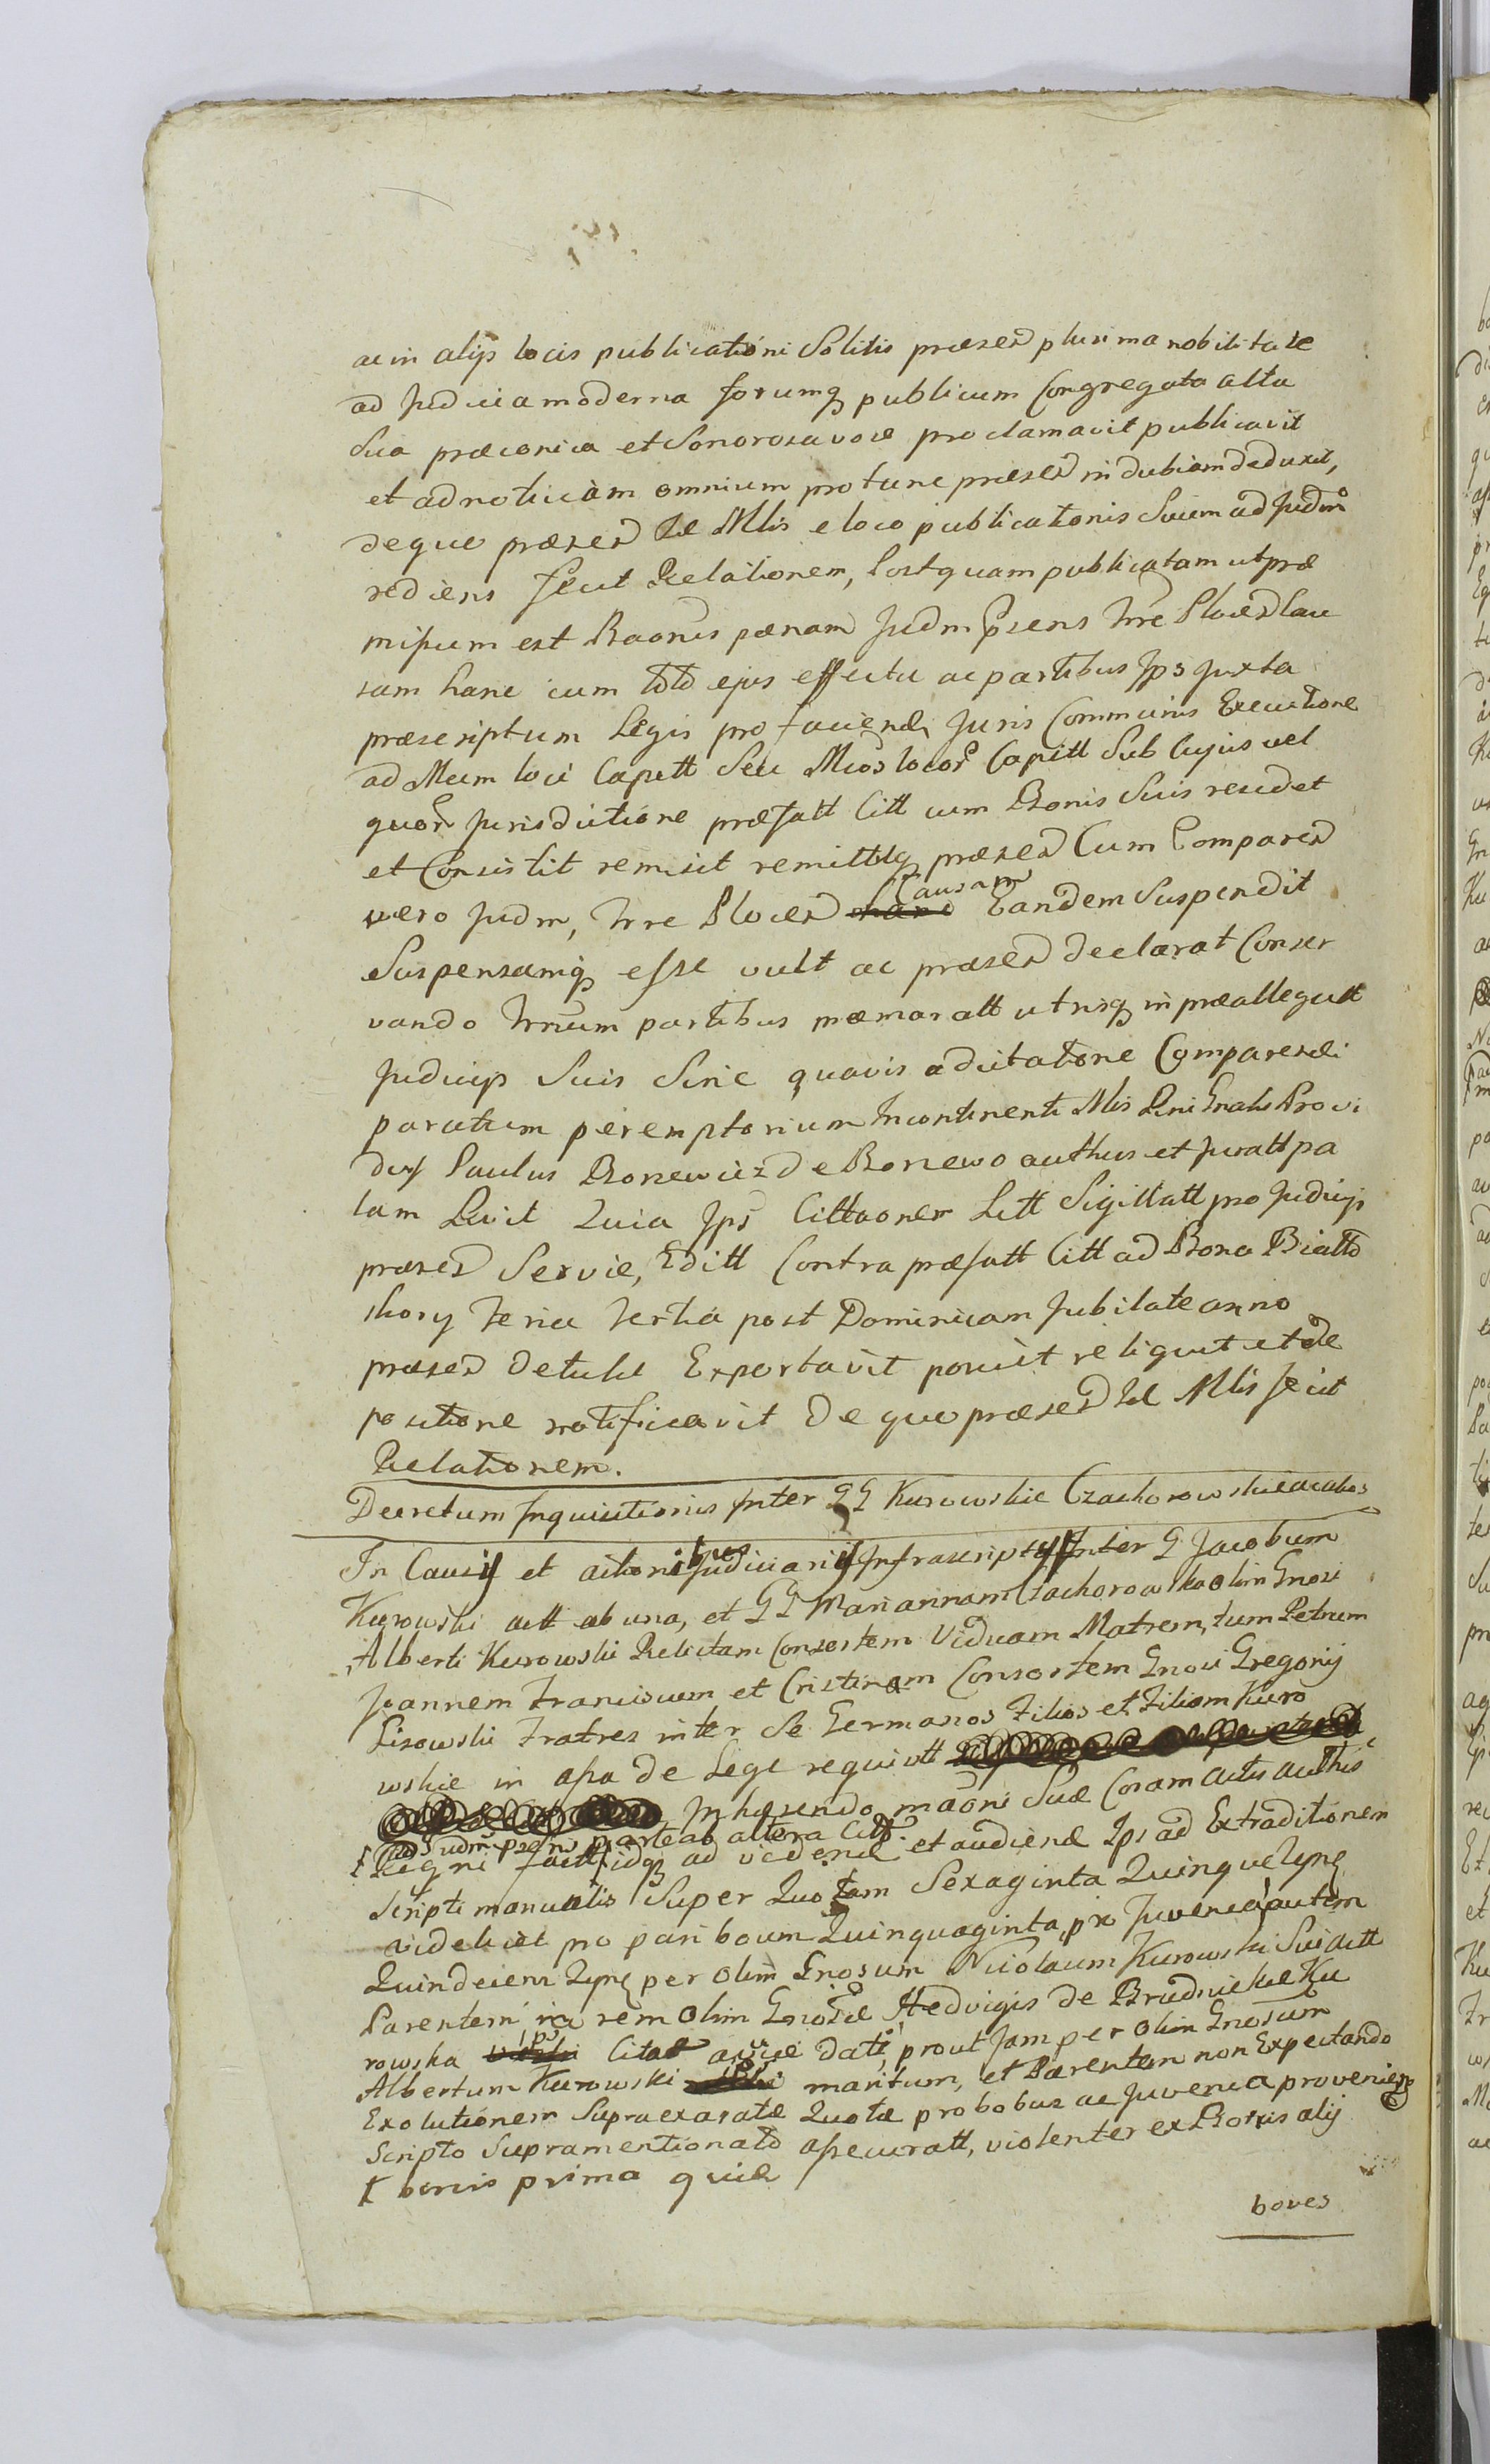 ac in alijs locis publicationi Solitis præsen plurima nobilitate
ad Judicia moderna forumq publicum Congregata alta
Sua præconica et Sonorosa voce proclamavit publicavit
et ad notitiam omnium protunc præsen indubiam deduxit,
deque præsen Ile Mlis e loco publicationis Suum ad Judm
rediens fecit Relationem, Postquam publicatam ut præ
missum est Baonis pænam Judm Psens Trre Plocen Cau
sam hanc cum toto ejus effectu ac partibus Jps Juxta
præscriptum Legis pro faciend Juris Communis Executione
ad Meum loci Capitt Seu Mcos locor Capitt Sub Cujus vel
quor Jurisdictione præfatt Citt cum Bonis Suis resid et
et Consistit remisit remittitq præsen Cum Comparen
vero Judm, Trre Plocen Causam Eandem Suspendit
Suspensamq esse vult ac præsen declarat Conser
vando Trnum partibus præmoratt utrisq in præallegatt
Judicijs Suis Sine quavis adcitatione Comparendi
paratum peremptorium Incontinenti Mlis Rni Gnalis Provi
dus Paulus Bonewicz de Bonewo authus et Juratt pa
lam Rcit Quia Jps Cittaonem Litt Sigillatt pro Judicijs
præsen Servie, Editt Contra præfatt Citt ad Bona Biatto
skory feria tertia post Dominicam Jubilate anno
præsen detulit Exportavit posuit reliquit et de
positione notificavit de quo præsen Ile Mlis fecit
Relationem.
Decretum Inquisitionis Inter GG Kurowskie Czachorowskie ac alios
In Causis et actionibus Judiciarijs Infrascriptis Inter G Jacobum
Kurowski actt ab una, et GG Mariannam Czachorowska olim Gnosi
Alberti Kurowski Relictam Consortem Viduam Matrem, tum Petrum
Joannem Franciscum et Cristinam Consortem Gnosi Gregorij
Lisowski Fratres inter Se Germanos Filios et Filiam Kuro
wskie in assa de Lege requisitt
Inhærendo maoni Suæ Coram actis authis
ad Judm psens parte ab altera Citt.
Regni factt idq ad vidend et audiend Ips ad Extraditionem
Scripti manualis Super Quotam Sexaginta Quinque Tynf
videlicet pro pari boum Quinquaginta, pro Juvenca autem
Quindecem Tynf per olim Gnosum Nicolaum Kurowski Sui actt
Parentem in rem olim Gnosæ Hedvigis de Brudnickie Ku
rowska ips Citat aviæ dati, prout Jam per olim Gnosum
Albertum Kurowski ips maritum, et Parentem non Expectando
Exolutionem Supraexaratæ Quotæ pro bobus ac Juvenca provenien
Scripto Supramentionato assecuratt, violenter ex Bonis alij
boves prima quid
boves